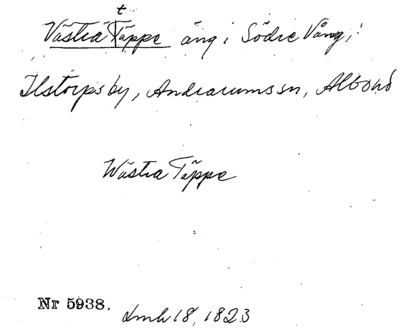 t
Västra Täppe äng i Södre Vång, i
Ilstorps by, Andrarums sn, Albo hd
Wästra Täppe
Nr 5938. Lmh 18, 1823